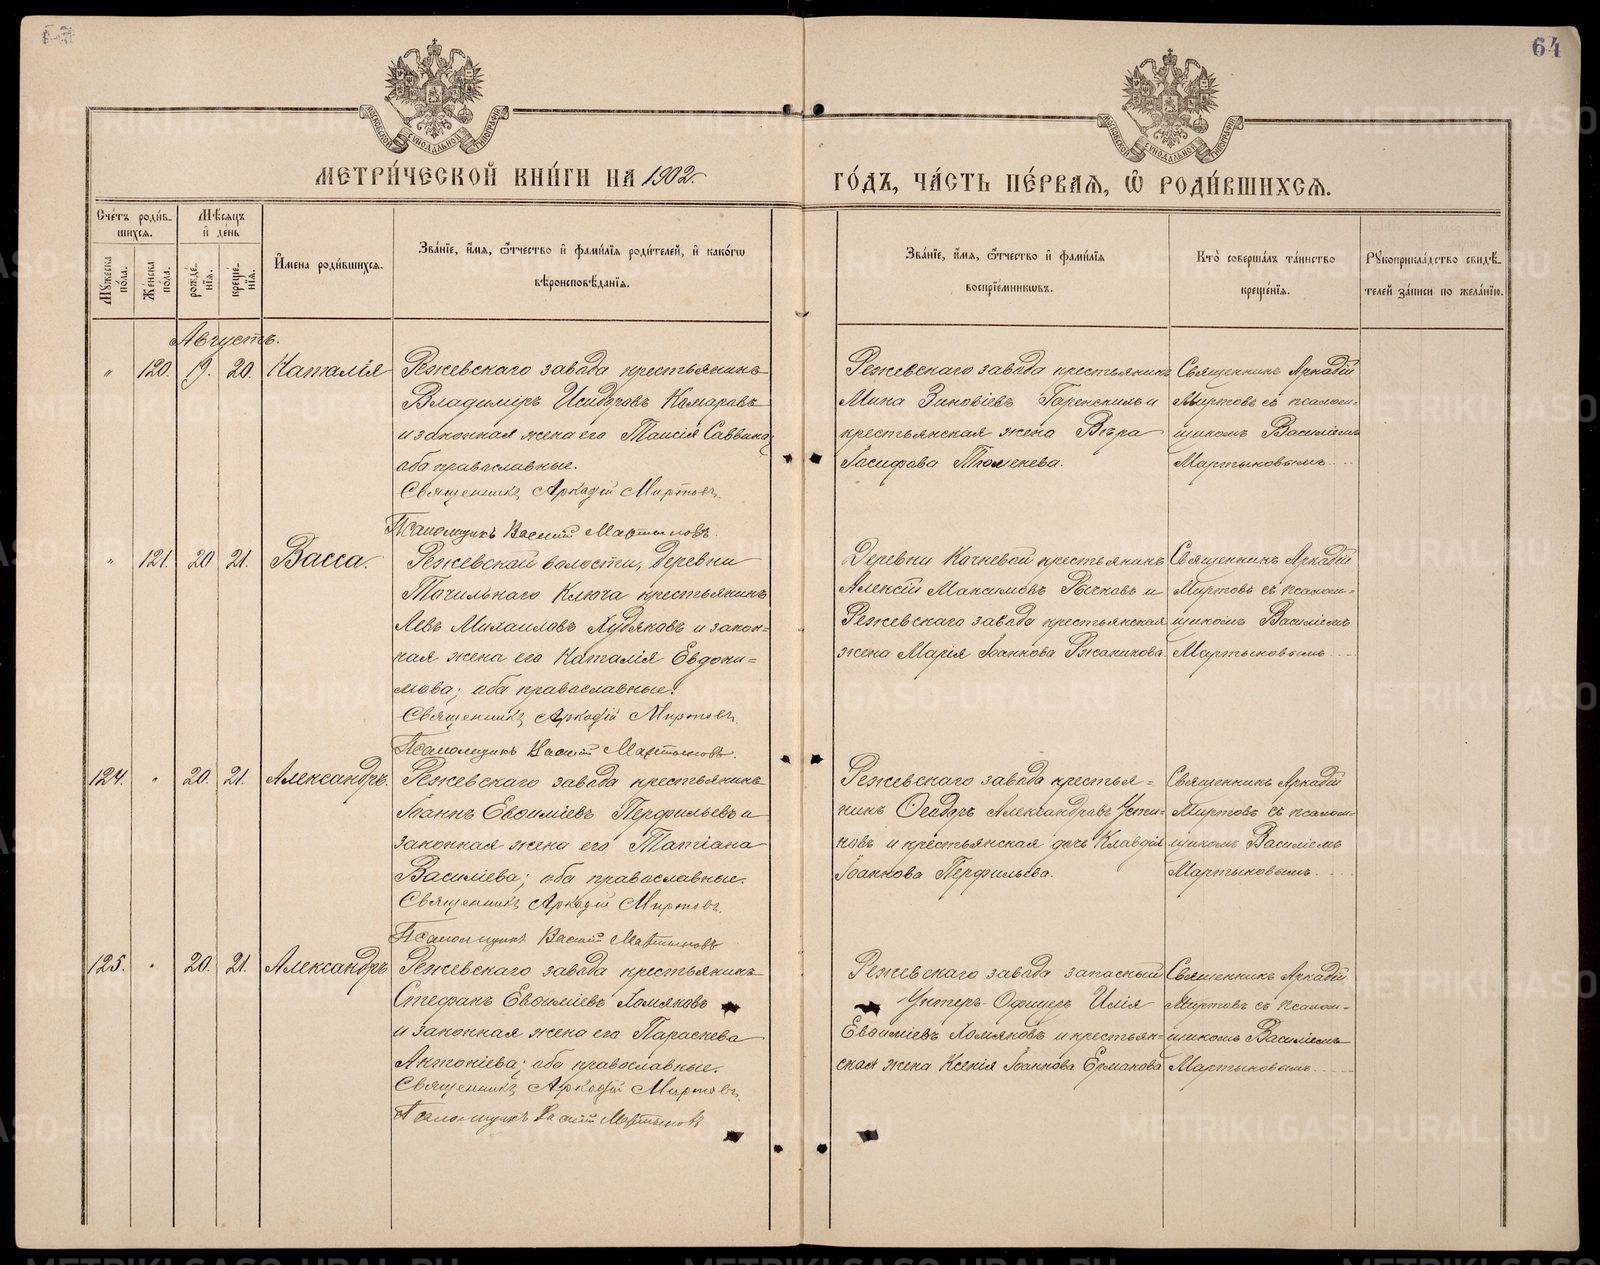 64
МЕТРИ́ЧЕСКОЙ КНИ́ГИ НА 1902.
ГО́ДЪ, ЧА́СТЬ ПЕ́РВАЯ, Ѿ РОДИ́ВШИХСЯ.
Сче́тъ роди́в-
шихся.
Мѣ́сяцъ
и҆ де́нь
Мꙋ́жеска
по́ла.
Же́нска
по́ла.
рожде́-
нїя.
креще́-
нїя.
И҆́мена роди́вшихся.
Зва́нїе, и҆́мя, ѻ҆́тчество и҆ фами́лїя роди́телей, и҆ како́гѡ
вѣроисповѣ́данїя.
Зва́нїе, и҆́мя, ѻ҆́тчество и҆ фами́лїя
воспрїе́мникѡвъ.
Кто̀ соверша́лъ та́инство
креще́нїя.
Рꙋкоприкла́дство свидѣ́-
телей за́писи по жела́нїю.
Августъ.
" 120. 19. 20. Наталія
Режевскаго завода крестьянинъ
Владиміръ Исидоровъ Комаровъ
и законная жена его Таисія Саввина;
оба православные.
Священникъ Аркадій Миртовъ.
Псаломщикъ Василій Мартыновъ.
Режевскаго завода крестьянинъ
Мина Зиновіевъ и
крестьянская жена Вѣра
Іосифова Тюменева.
Священникъ Аркадій
Миртовъ съ псалом-
щикомъ Василіемъ
Мартыновымъ.
" 121. 20 21. Васса.
Режевской волости, деревни
Точильнаго Ключа крестьянинъ
Левъ Михаиловъ Худяковъ и закон-
ная жена его Наталія Евдоки-
мова; оба православные.
Священникъ Аркадій Миртовъ.
Псаломщикъ Василій Мартыновъ.
Деревни Кочневой крестьянинъ
Алексій Максимовъ Рычковъ и
Режевскаго завода крестьянская
жена Марія Іоаннова Ржанникова.
Священникъ Аркадій
Миртовъ съ псалом-
щикомъ Василіемъ
Мартыновымъ.
124. " 20. 21. Александръ.
Режевскаго завода крестьянинъ
Іоаннъ Евѳиміевъ Перфильевъ и
законная жена его Татіана
Василіева; оба православные.
Священникъ Аркадій Миртовъ.
Псаломщикъ Василій Мартыновъ
Режевскаго завода крестья-
нинъ Ѳеодоръ Александровъ Усти-
новъ и крестьянская дочь Клавдія
Іоаннова Перфильева.
Священникъ Аркадій
Миртовъ съ псалом-
щикомъ Василіемъ
Мартыновымъ.
125. " 20. 21. Александръ
Режевскаго завода крестьянинъ
Стефанъ Евѳиміевъ Хомяковъ
и законная жена его Параскева
Антоніева; оба православные.
Священникъ Аркадій Миртовъ.
Псаломщикъ Василій Мартыновъ
Режевскаго завода запасный
Унтеръ-Офицеръ Илія
Евѳиміевъ Хомяковъ и крестьян-
ская жена Ксенія Іоаннова Ермакова
Священникъ Аркадій
Миртовъ съ псалом-
щикомъ Василіемъ
Мартыновымъ.
METRIKI.GASO-URAL.RU